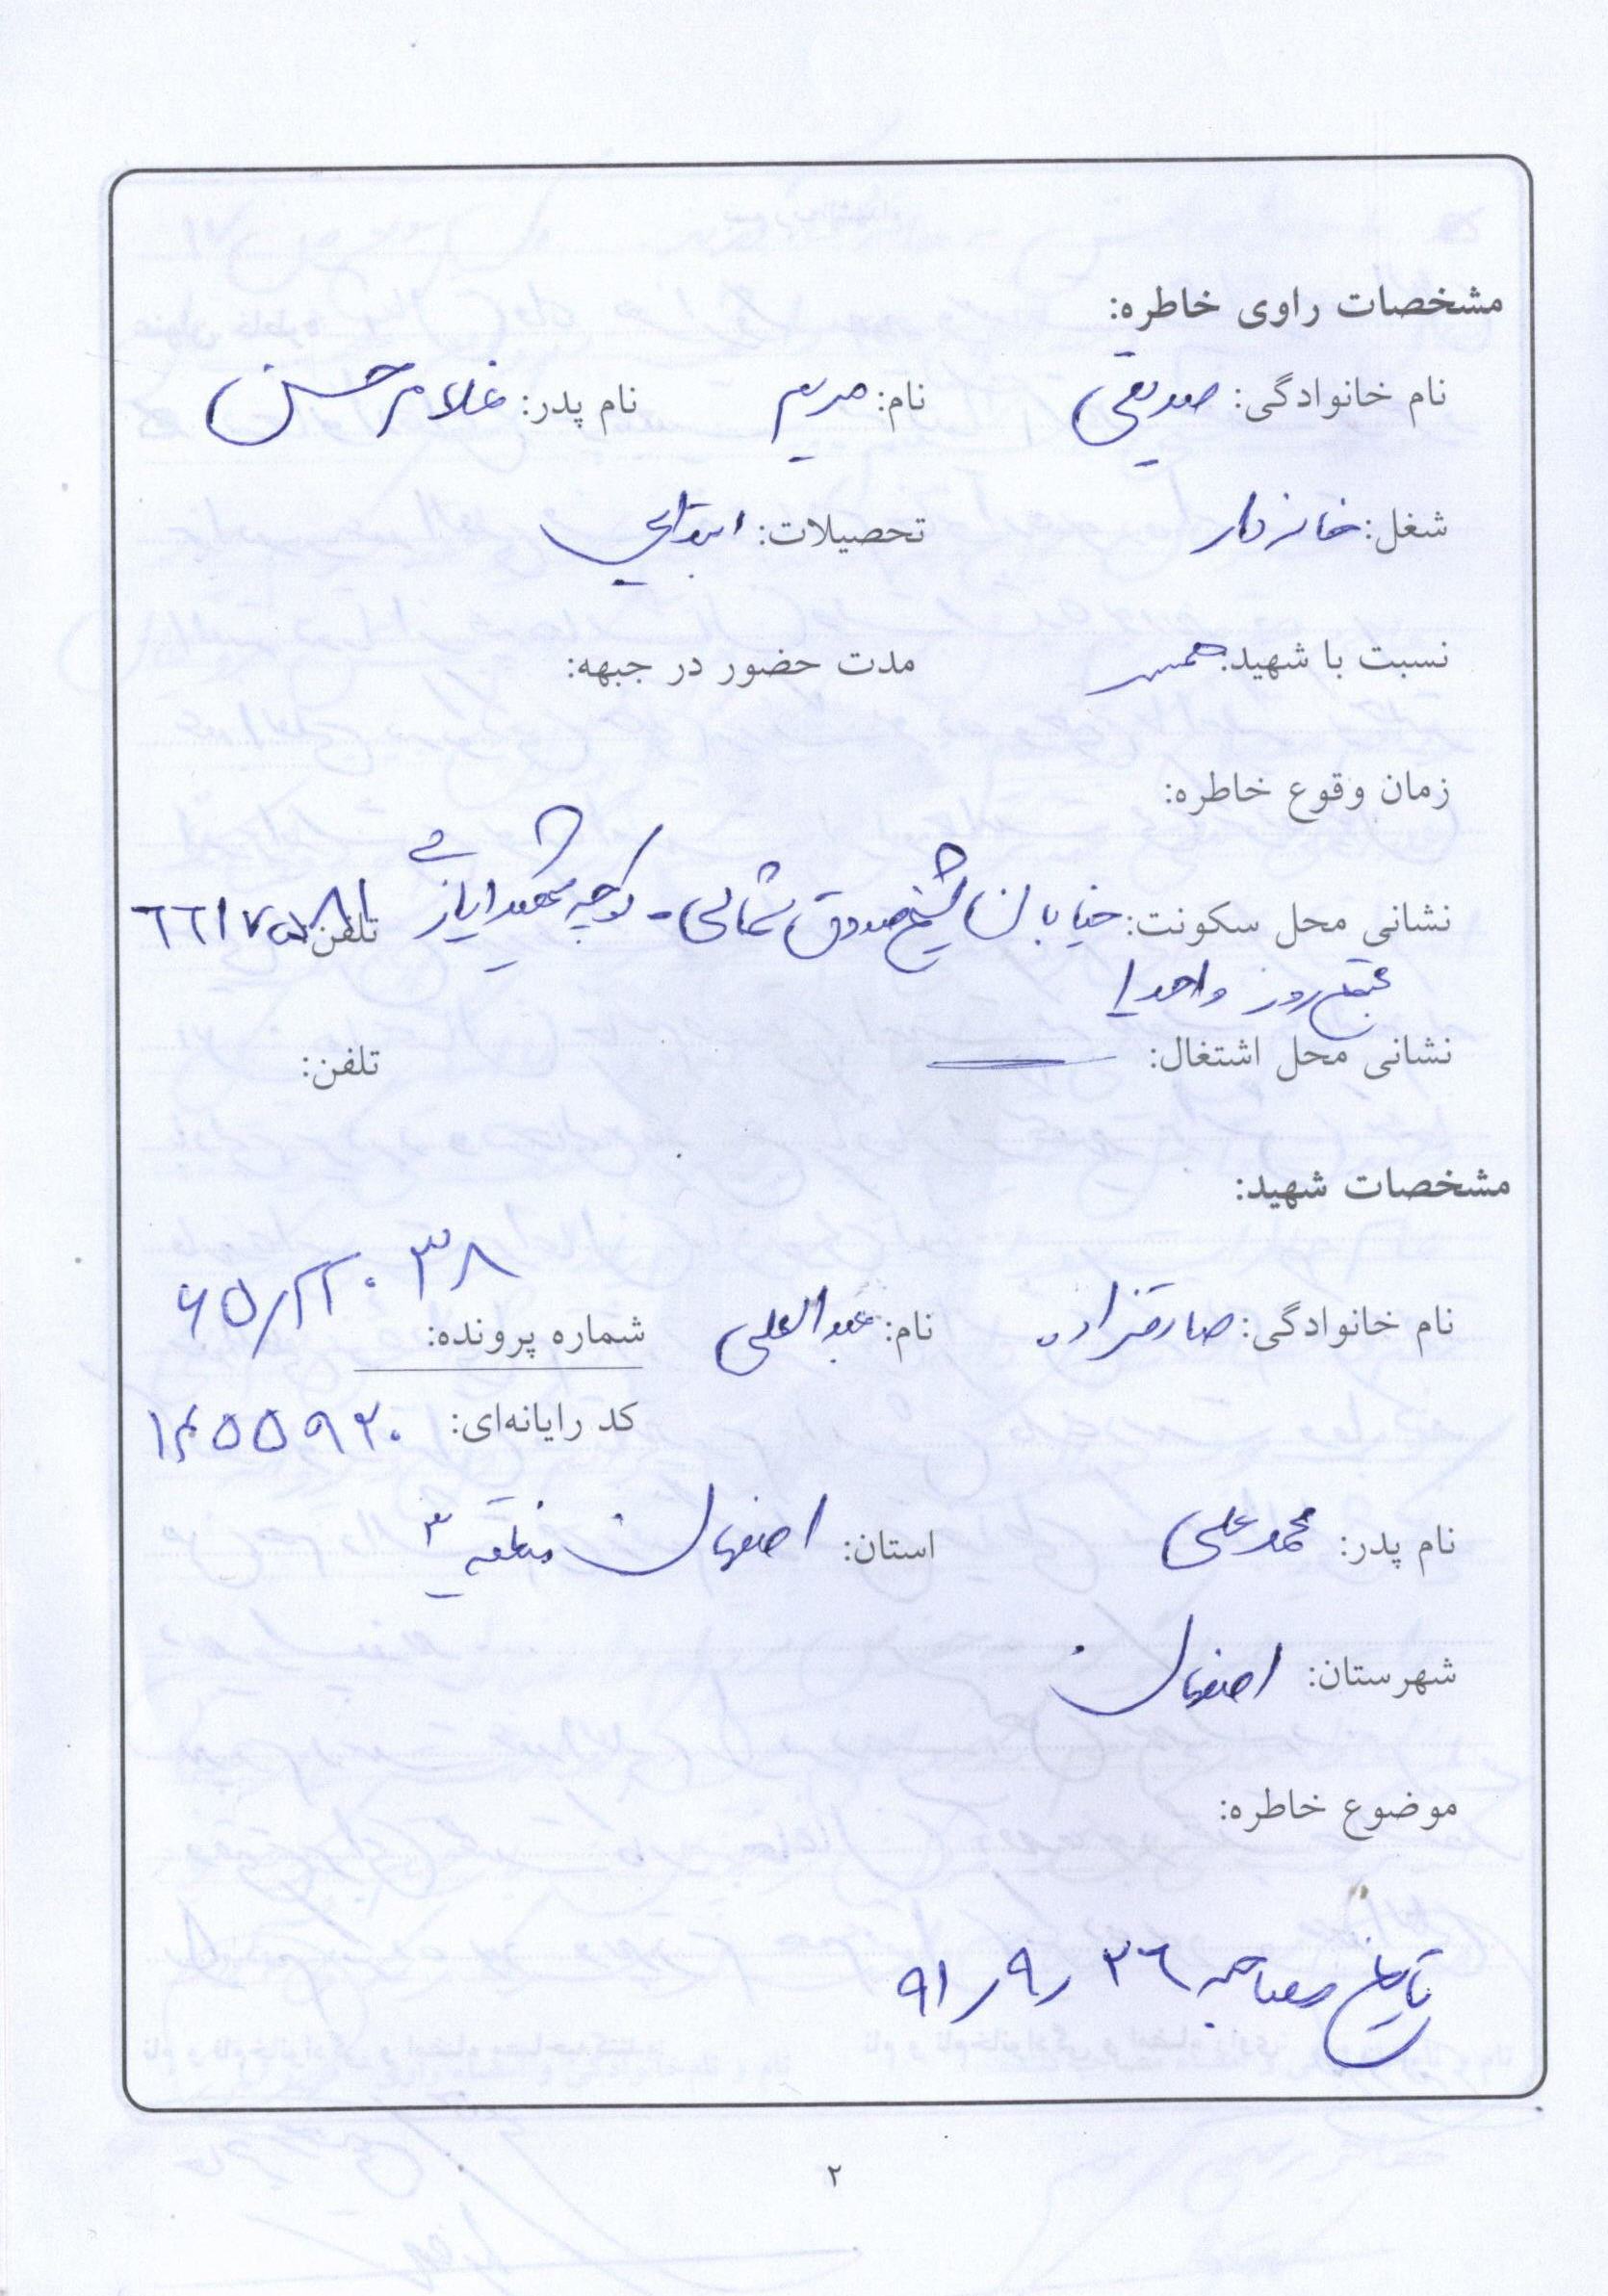 مشخصات راوی خاطره:
نام خانوادگی: صدیقی نام: مریم نام پدر: غلامرحسن
شغل: خانه دار تحصیلات: ابتدایی
نسبت با شهید: همسر مدت حضور در جبهه:
زمان وقوع خاطره:
نشانی محل سکونت: خیابان شیخ صدوق شمالی - کوچه شهید ایازی تلفن:
مجتمع رز واحد ۱
نشانی محل اشتغال: تلفن:
مشخصات شهید:
نام خانوادگی: صادقزاده نام: عبدالعلی شماره پرونده: ۶۵/۲۲۰۳۸
کد رایانه‌ای: ۱۴۵۵۹۲۰
نام پدر: محمدعلی استان: اصفهان منطقه ۳
شهرستان: اصفهان
موضوع خاطره:
تاریخ مصاحبه ۹۱/۹/۲۶
۲